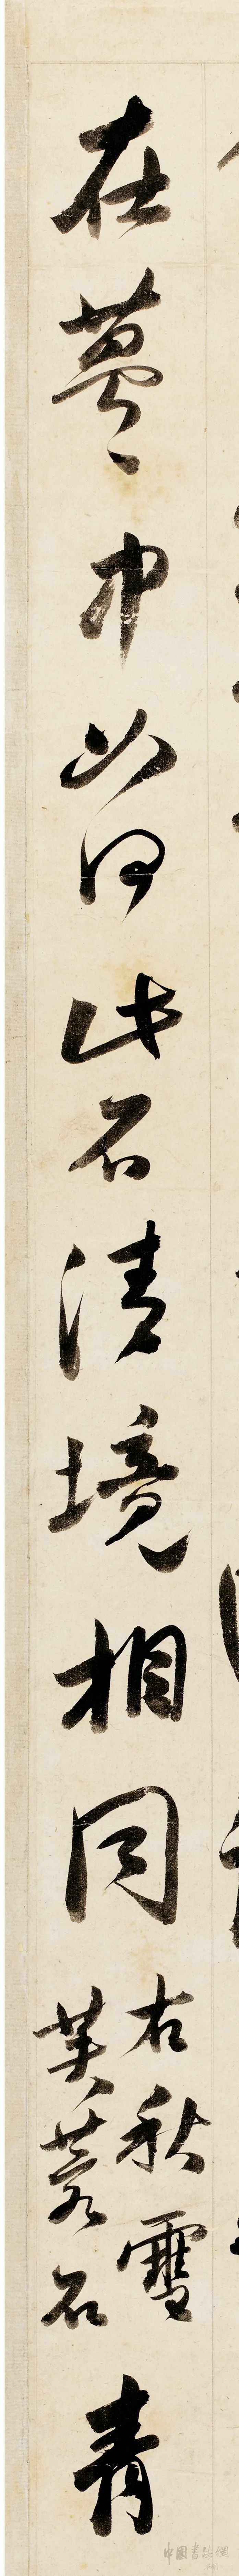 在夢中以此石清境相同
右秋雪
芙蓉石
青
中國書法網